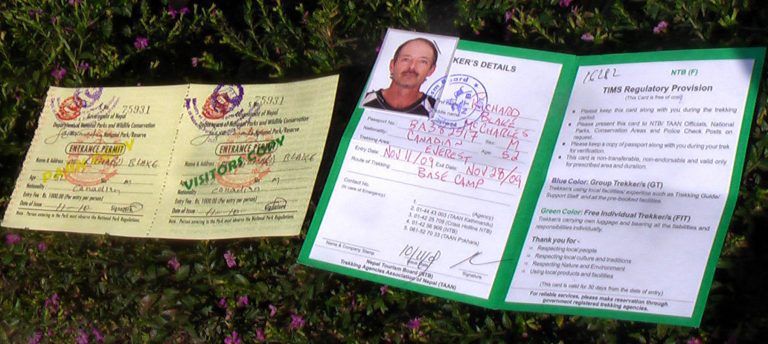 75931
Government of Nepal
Department of National Parks and Wildlife Conservation
National Park/Reserve
ENTRANCE PERMIT
Name & Address
BLAKE
Nationality
Canadian
M
Entry Fee Rs. 1000.00 (Per entry per person)
Date of Issue
Signature
Note : Person entering in the Park must observe the National Park Regulations.
75931
Government of Nepal
Department of National Parks and Wildlife Conservation
National Park/Reserve
ENTRANCE PERMIT
VISITORS COPY
Name & Address
BLAKE
Nationality
Canadian
M
Entry Fee Rs. 1000.00 (Per entry per person)
Date of Issue
Signature
Note : Person entering in the Park must observe the National Park Regulations.
KER'S DETAILS
RICHARD
BLAKE
MCCHARLES
Passport No.
Nationality: CANADIAN
Sex: M
Age: 52
Trekking Area: EVEREST
Entry Date: NOV 11/09
NOV 28/09
Route of Trekking: BASE CAMP
Contact No.
(In case of Emergency)
1. (Agency)
2. 01-44 43 003 (TAAN Kathmandu)
5. 061-52 70 33 (TAAN Pokhara)
Name & Company Stamp
Signature
Nepal Tourism Board (NTB)
Trekking Agencies Association of Nepal (TAAN)
NTB (F)
TIMS Regulatory Provision
(This Card is free of cost)
Please keep this card along with you during the trekking
period.
Please present this card to NTB/ TAAN Officials, National
Parks, Conservation Areas and Police Check Posts on
request.
Please keep a copy of passport along with you during your trek
for verification.
This card is non-transferable, non-endorsable and valid only
for prescribed area and duration.
Blue Color: Group Trekker's (GT)
Trekkers using local facilities/services such as Trekking Guide/
Support Staff and all the pre-booked facilities.
Green Color: Free Individual Trekker's (FIT)
Trekkers carrying own luggage and bearing all the liabilities and
responsibilities individually.
Thank you for -
Respecting local people
Respecting local culture and traditions
Respecting Nature and Environment
Using local products and facilities
(This card is valid for 30 days from the date of entry)
For reliable services, please make reservation through
government registered trekking agencies.